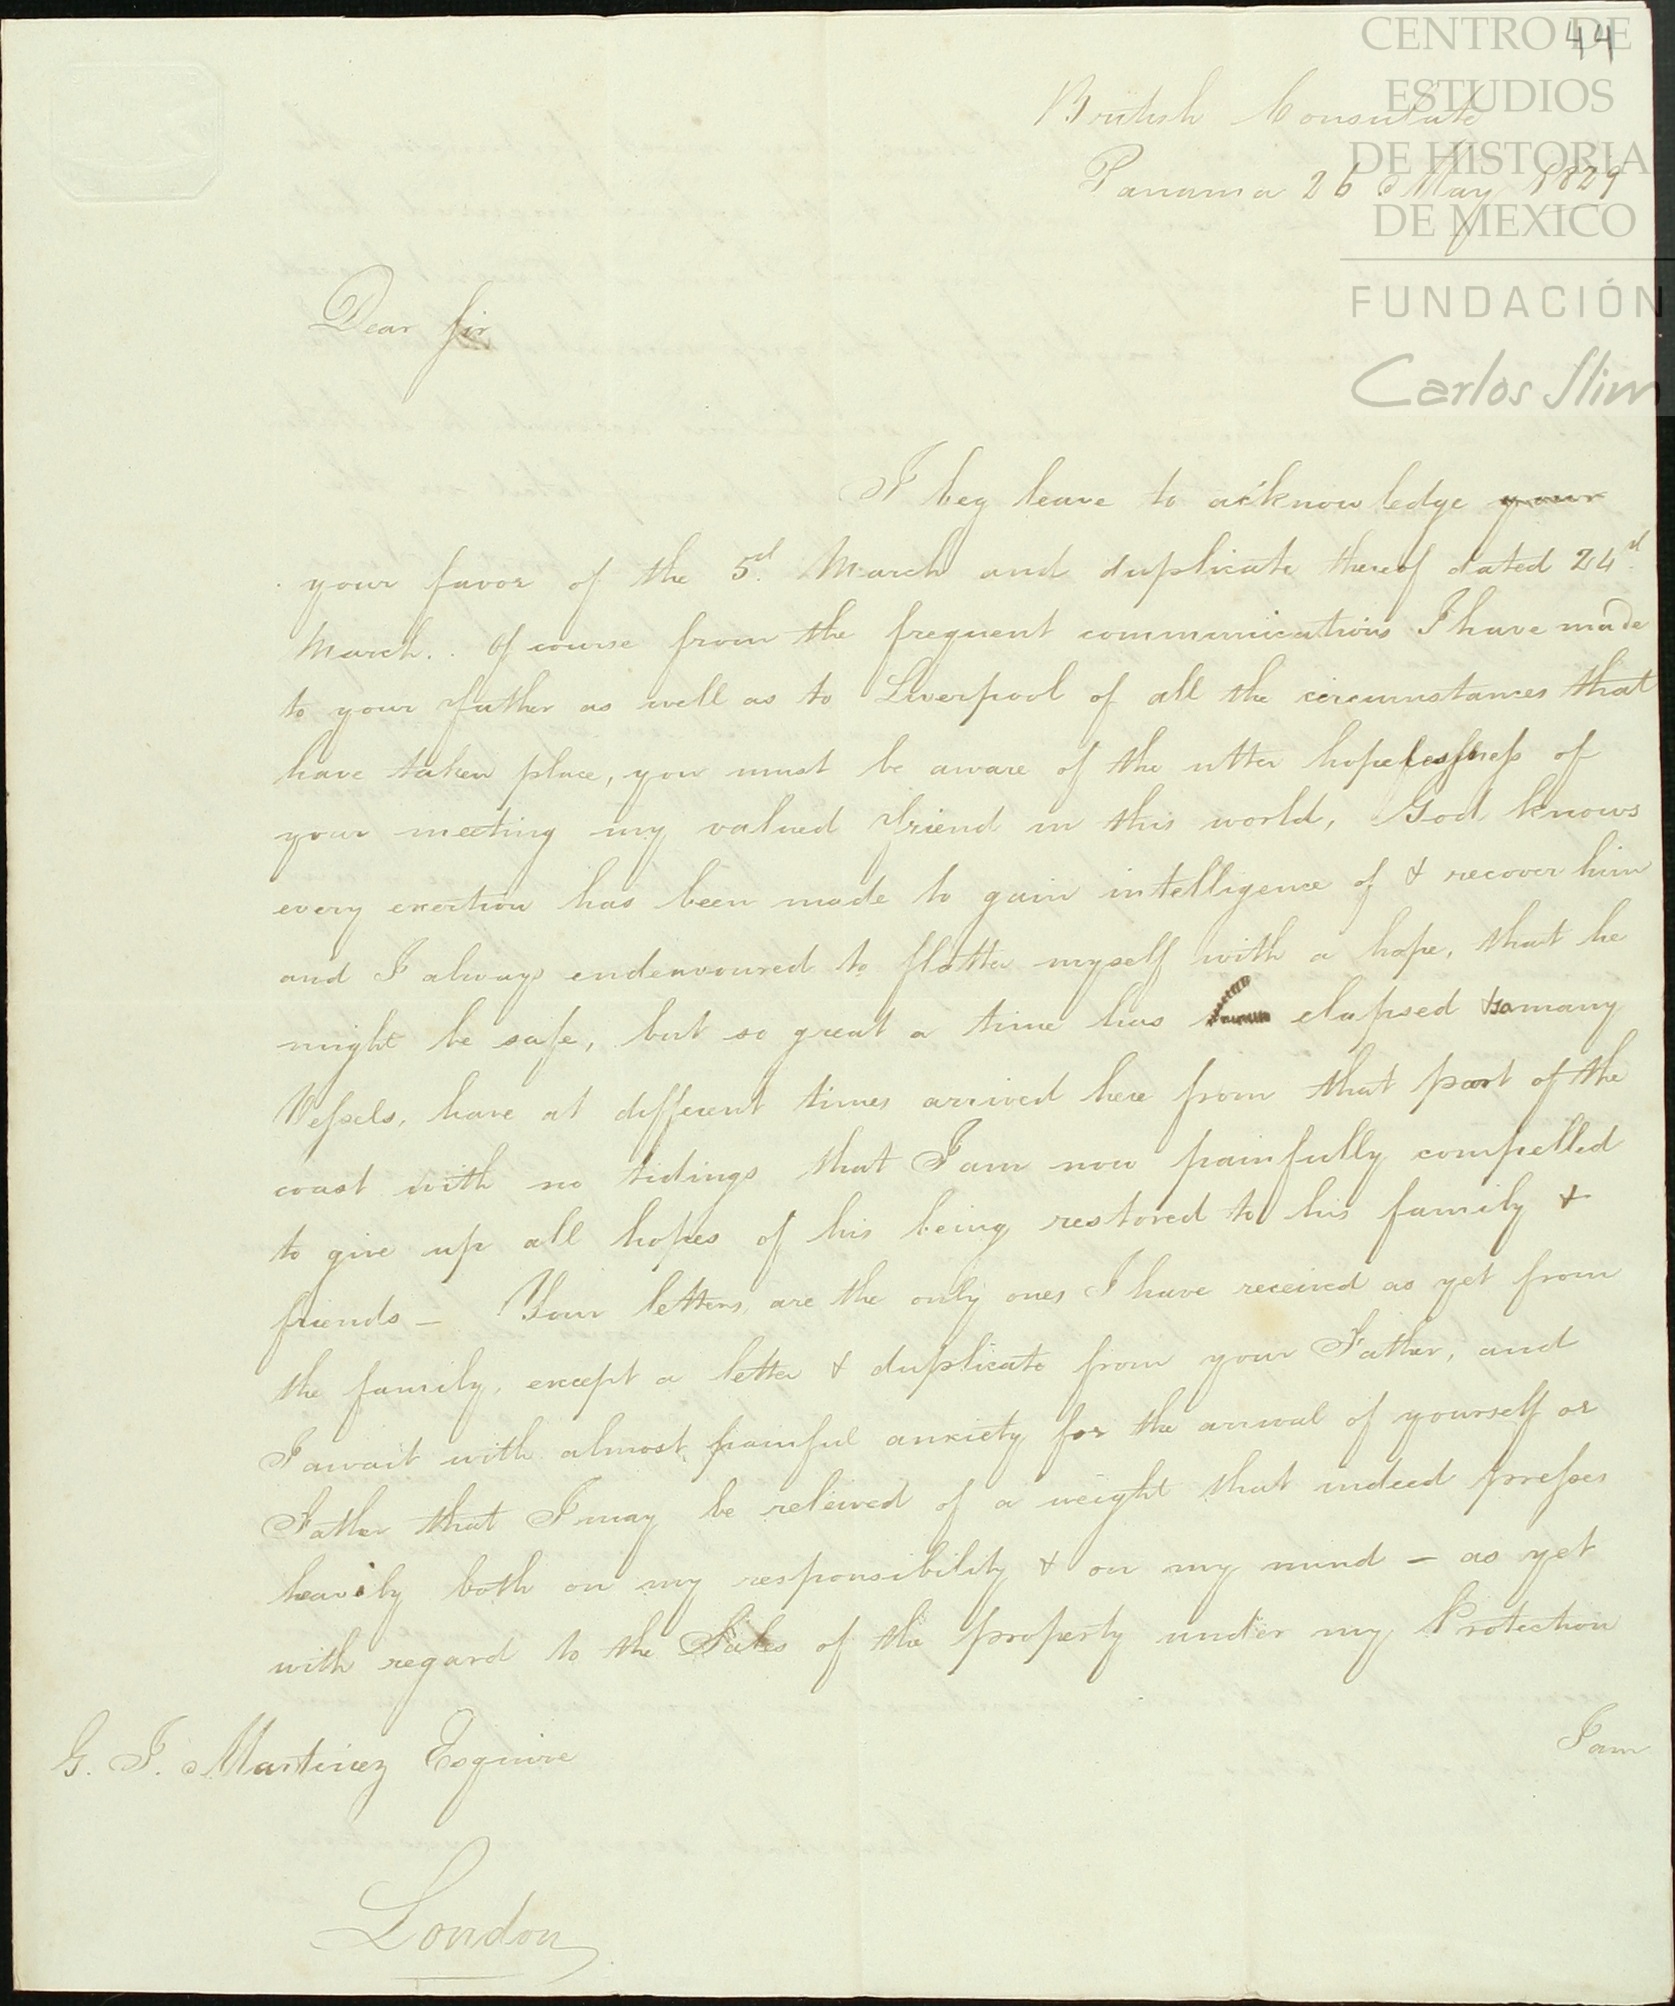 44
CENTRO DE
ESTUDIOS
DE HISTORIA
DE MEXICO
FUNDACIÓN
Carlos Slim
British Consulate
Panama 26 May 1829
Dear Sir
I beg leave to acknowledge your
your favor of the 5d. March and duplicate thereof dated 24d.
March.. Of course from the frequent communications I have made
to your Father as well as to Liverpool of all the circumstances that
have taken place, you must be aware of the utter hopelessness of
your meeting my valued Friend in this world, God knows
every exertion has been made to gain intelligence of & recover him
and I always endeavoured to flatter myself with a hope, that he
might be safe, but so great a time has elapsed & so many
Vessels, have at different times arrived here from that part of the
coast with no tidings that I am now painfully compelled
to give up all hopes of his being restored to his family &
friends — Your letters, are the only ones I have received as yet from
the family, except a letter & duplicate from your Father, and
I await with almost painful anxiety for the arrival of yourself or
Father that I may be relieved of a weight that indeed presses
heavily both on my responsibility & on my mind — as yet
with regard to the Sales of the property under my Protection
I am
G. J. Martinez Esquire
London